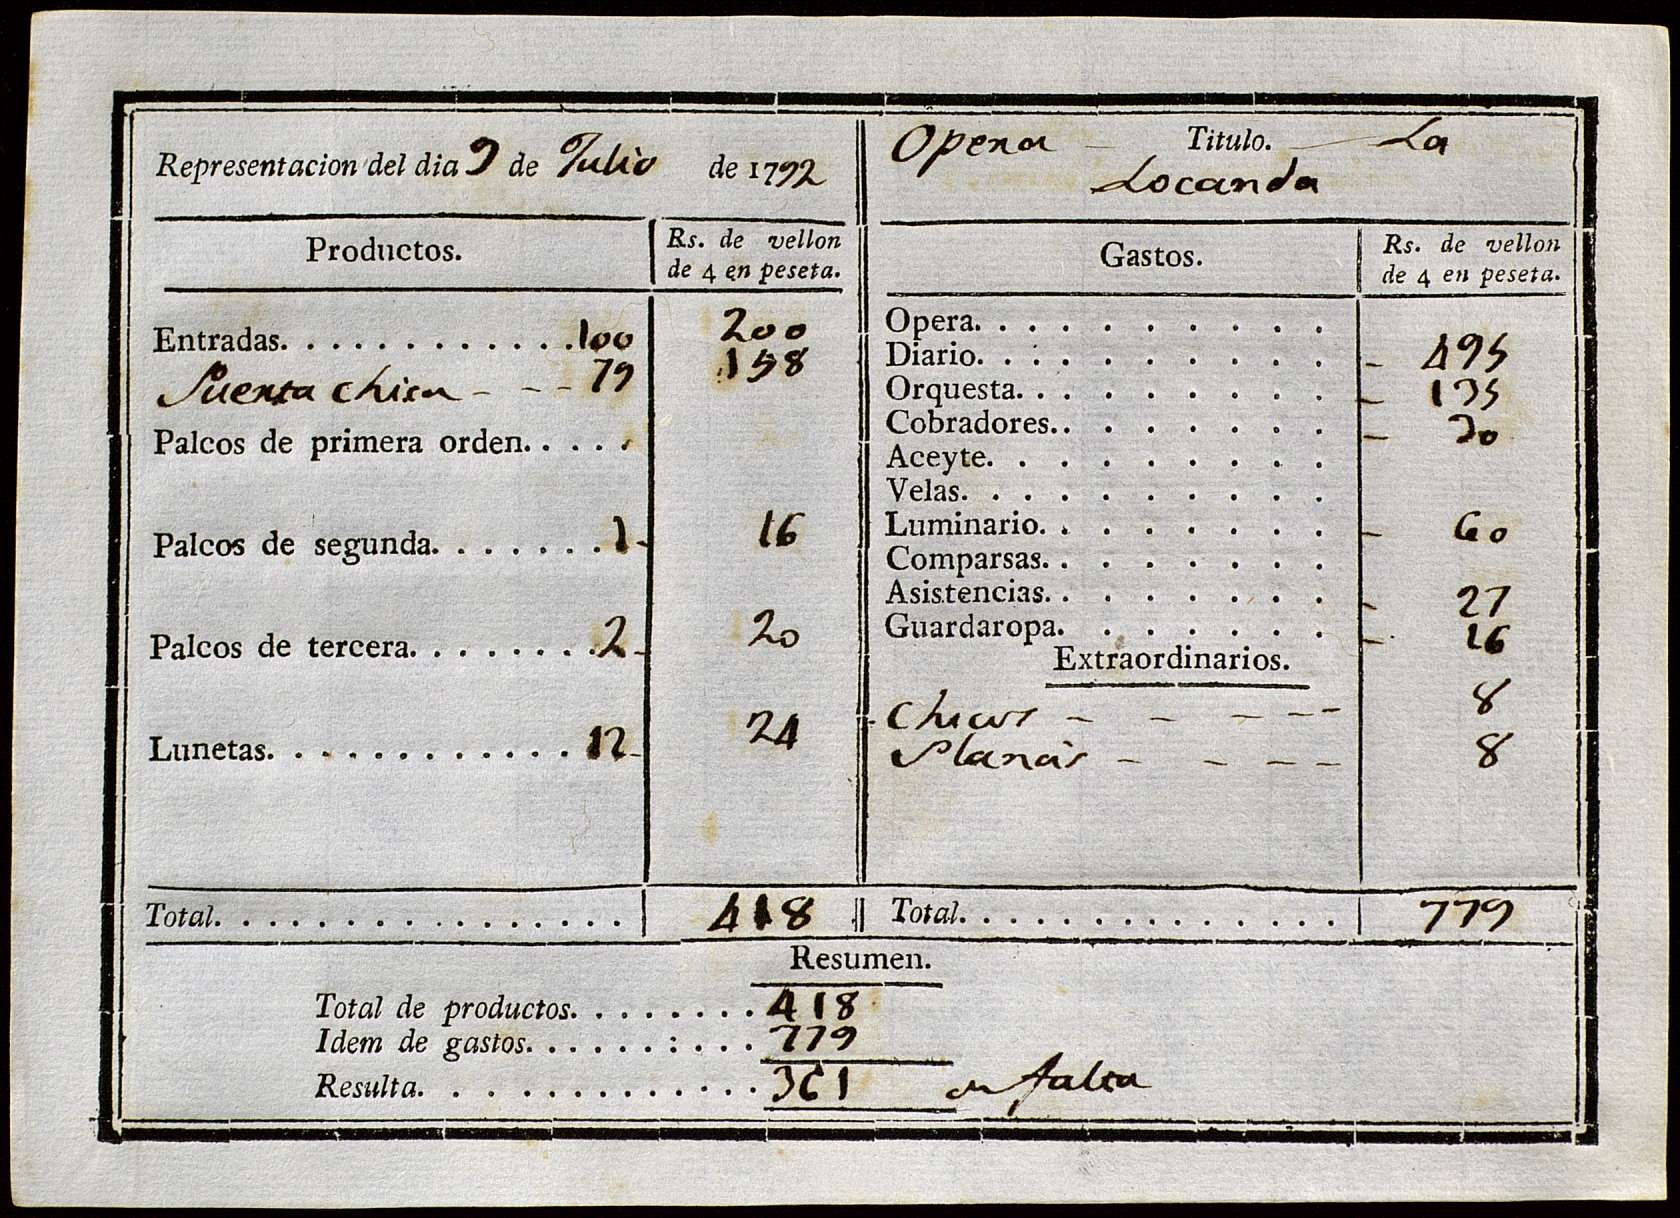 Representacion del dia 9 de Julio de 1792
Opera - Titulo. - La
Locanda
Productos. Rs. de vellon
de 4 en peseta.
Entradas. . . . . . . . . . . . .100 200
Puerta chica - - - 79 158
Palcos de primera orden. . . . .
Palcos de segunda. . . . . . . .1 - 16
Palcos de tercera. . . . . . . . .2 - 20
Lunetas. . . . . . . . . . . . 12 - 24
Total. . . . . . . . . . . . . . . . . 418
Gastos. Rs. de vellon
de 4 en peseta.
Opera. . . . . . . . . .
Diario. . . . . . . . . . - 495
Orquesta. . . . . . . . . - 135
Cobradores. . . . . . . . - 30
Aceyte. . . . . . . . . .
Velas. . . . . . . . . .
Luminario. . . . . . . . - 60
Comparsas. . . . . . . .
Asistencias. . . . . . . . - 27
Guardaropa. . . . . . . - 16
Extraordinarios.
Chicos - - - - - 8
Planàs - - - - 8
Total. . . . . . . . . . . . . . . 779
Resumen.
Total de productos. . . . . . . . 418
Idem de gastos. . . . . . : . . . 779
Resulta. . . . . . . . . . . . . 361 en falta